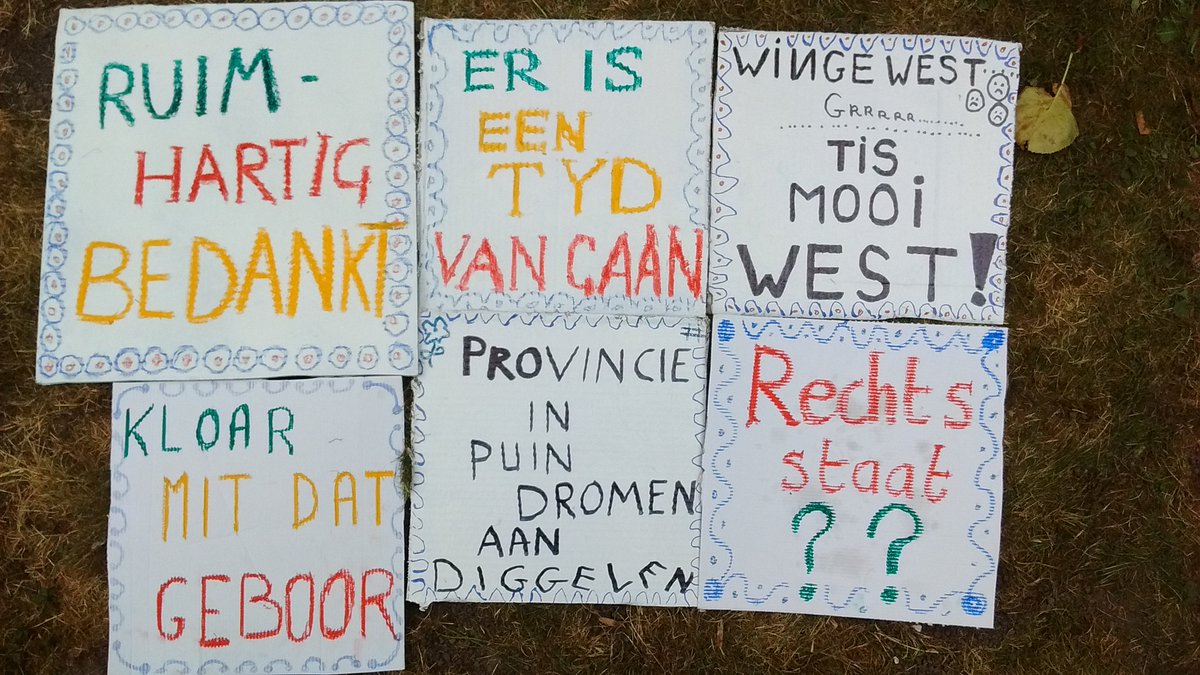 RUIM-
HARTIG
BEDANKT
ER IS
EEN
TYD
VAN GAAN
WINGEWEST....
GRRRRR........
TIS
MOOI
WEST!
KLOAR
MIT DAT
GEBOOR
#
PROVINCIE
IN
PUIN
DROMEN
AAN
DIGGELEN
Rechts
staat
??